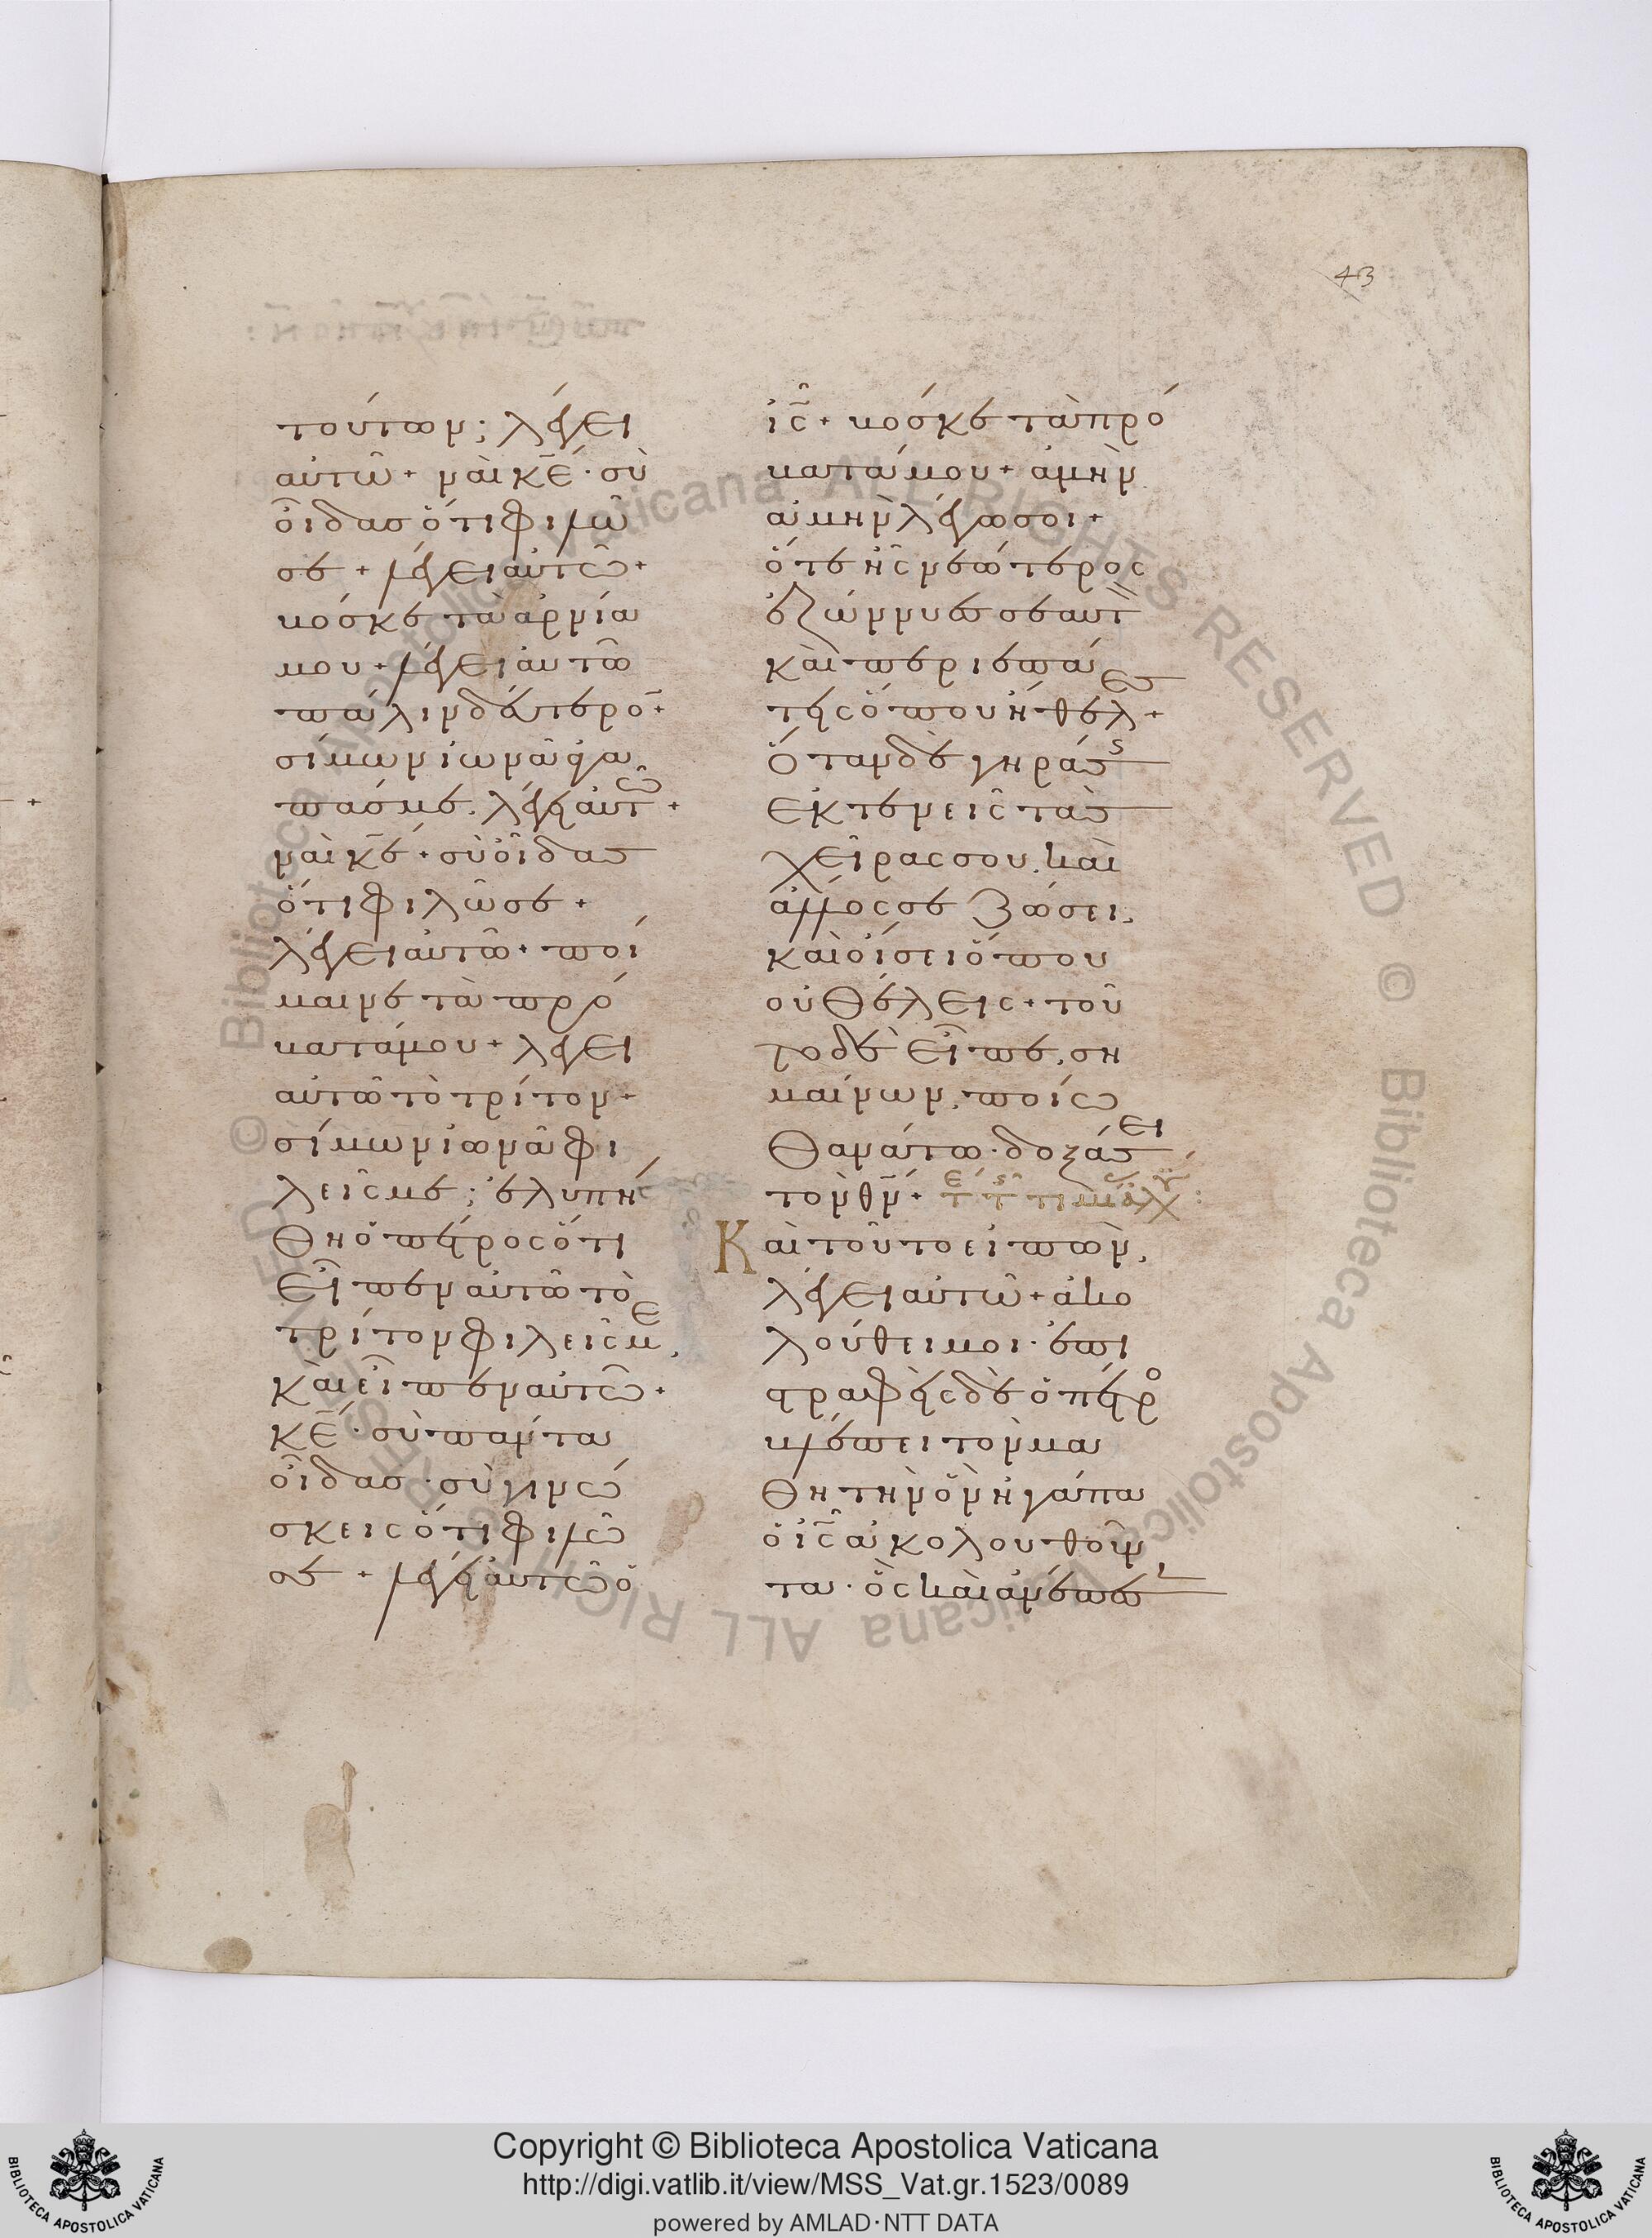 43
τούτων; λέγει
αὐτῶ + ναὶ κ̅ε̅ · σὺ
οἶδασ ὅτι φιλῶ
σε + λέγει αὐτῶ +
βόσκε τὰ ἀρνία
μου + λέγει αὐτῶ
πάλιν δεύτερο̅ +
σίμων ἰωνᾶ ἀγα
πᾶσ με. λέγει αὐτῶ +
ναὶ κ̅ε̅ + σὺ οἶδασ
ὅτι φιλῶ σε +
λέγει αὐτῶ + ποί
μαινε τὰ πρό
βατά μου + λέγει
αὐτῶ τὸ τρίτον +
σίμων ἰωνᾶ φι
λεῖς με; ἐλυπή
θη ὁ πέτρος ὅτι
εἶπεν αὐτῶ τὸ
τρίτον φιλεῖς με,
καὶ εἶπεν αὐτῶ +
κ̅ε̅ · σὺ πάντα
οἶδασ · σὺ γινώ
σκεις ὅτι φιλῶ
σε + λέγει αὐτῶ ὁ
ι̅ς̅ + βόσκε τὰ πρό
βατά μου + ἀμὴν
ἀμὴν λέγω σοι +
ὅτε ἦς νεώτερος
ἐζώννυες σεαυτ
καὶ περιεπά
τεις ὅπου ἤθελες +
Ὅταν δὲ γηράσς
ἐκτενεῖς τὰσ
χεῖρας σου. καὶ
ἄλλος σε ζώσει,
καὶ οἴσει ὅπου
οὐ θέλεις + τοῦ
το δὲ εἶπε, ση
μαίνων, ποίω
θανάτω · δοξάσει
τὸν θ̅ν̅ +
Καὶ τοῦτο εἰπὼν,
λέγει αὐτῶ + ἀκο
λούθει μοι · ἐπι
στραφεὶς δὲ ὁ πέτρο
βλέπει τὸν μα
θητὴν ὃν ἠγάπα
ὁ ι̅ς̅ ἀκολουθοῦν
τα · ὃς καὶ ἀνέπεσ
Copyright © Biblioteca Apostolica Vaticana
http://digi.vatlib.it/view/MSS_Vat.gr.1523/0089
powered by AMLAD·NTT DATA
BIBLIOTECA APOSTOLICA VATICANA
BIBLIOTECA APOSTOLICA VATICANA